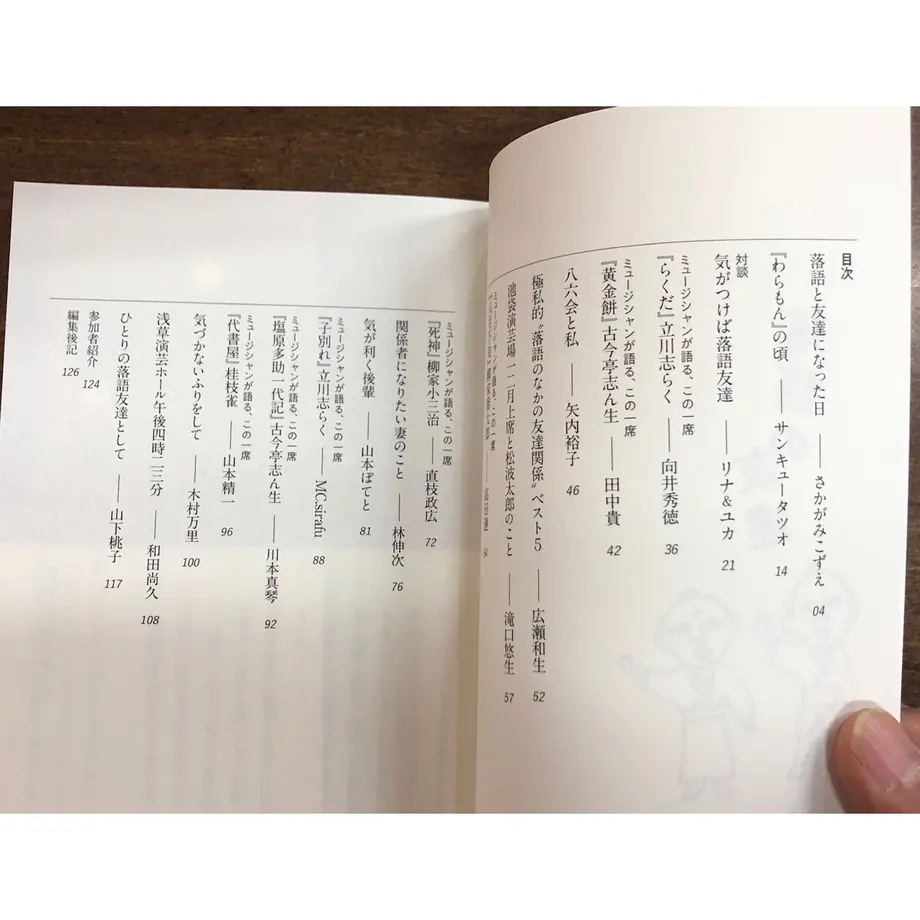 目次
落語と友達になった日 ―― さかがみこずえ 04
『わらもん』の頃 ―― サンキュータツオ 14
対談
気がつけば落語友達 ―― リナ&ユカ 21
ミュージシャンが語る、この一席
『らくだ』立川志らく ―― 向井秀徳 36
ミュージシャンが語る、この一席
『黄金餅』古今亭志ん生 ―― 田中貴 42
八六会と私 ―― 矢内裕子 46
極私的“落語のなかの友達関係”ベスト5 ―― 広瀬和生 52
池袋演芸場一二月上席と松波太郎のこと ―― 滝口悠生 57
ミュージシャンが語る、この一席
ミュージシャンが語る、この一席
『死神』柳家小三治 ―― 直枝政広 72
関係者になりたい妻のこと ―― 林伸次 76
気が利く後輩 ―― 山本ぽてと 81
ミュージシャンが語る、この一席
『子別れ』立川志らく ―― MC.sirafu 88
ミュージシャンが語る、この一席
『塩原多助一代記』古今亭志ん生 ―― 川本真琴 92
ミュージシャンが語る、この一席
『代書屋』桂枝雀 ―― 山本精一 96
気づかないふりをして ―― 木村万里 100
浅草演芸ホール午後四時二三分 ―― 和田尚久 108
ひとりの落語友達として ―― 山下桃子 117
参加者紹介 124
編集後記 126